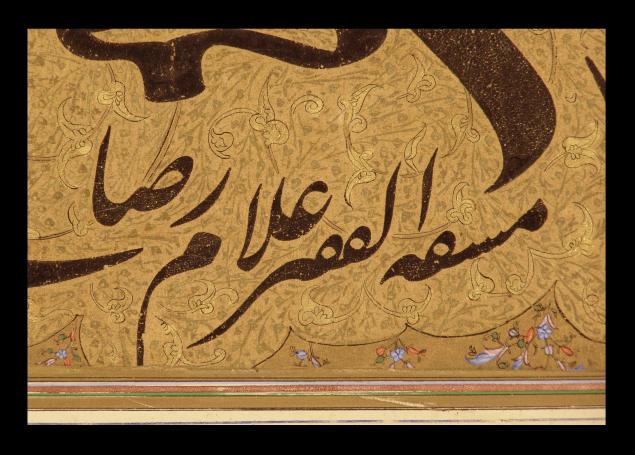 مشقه الفقیر غلام رضا